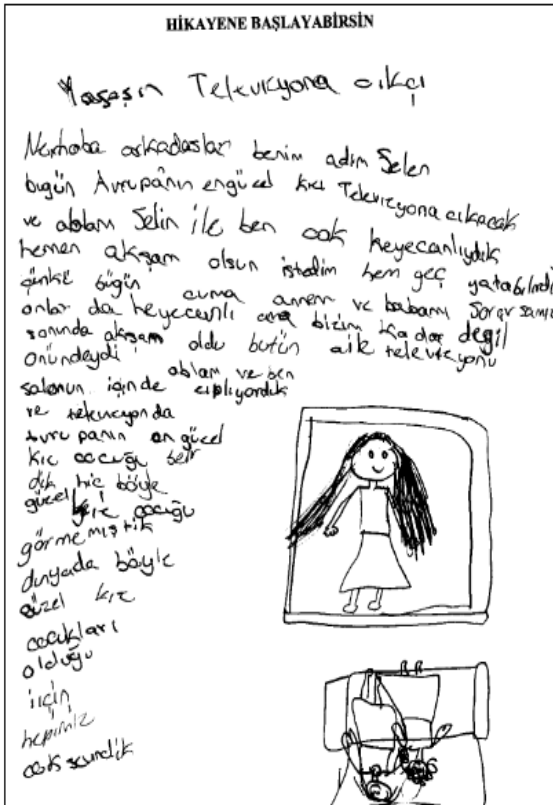 HİKAYENE BAŞLAYABİRSİN
Yaşaşın Televizyona cıkçı
Merhaba arkadaslar benim adım Selen
bugün Avrupanın engücel kızı Televizyona cıkacak
ve ablam Selin ile ben cok heyecanlıydık
hemen akşam olsun istedim hem geç yatabilirdi
çünkü bügün cuma annem ve babamı sorarsanız
onlar da heyecanlı ama bizim kadar değil
sonunda akşam oldu bütün aile televizyonu
önündeydi ablam ve ben
salonun içinde zıplıyordık
ve televizyonda
avrupanın en gücel
kız cocuğu
dık hic böyle
gücel kız çocuğu
görmemiştik
dünyada böyle
güzel kız
cocukları
olduğu
için
hepimiz
cok sevndik